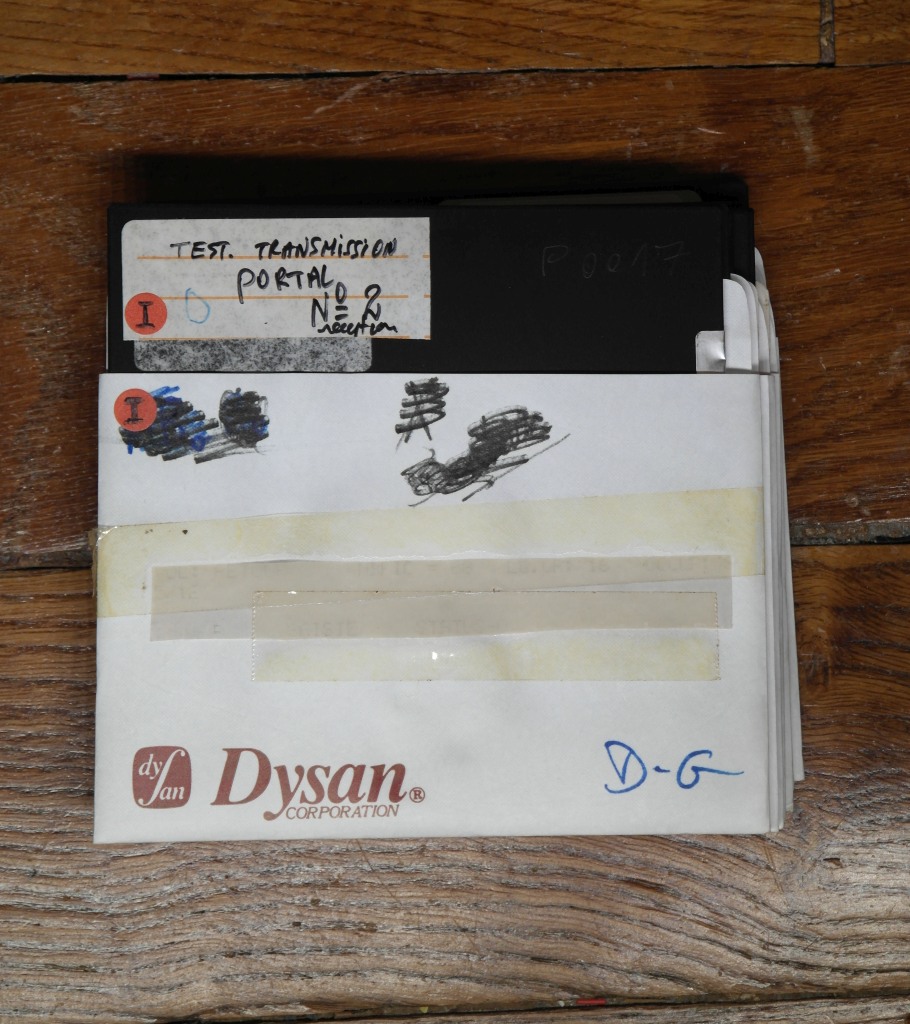 TEST. TRANSMISSION
PORTAL
Nº 2
reception
I
P 0017
I
dysan
Dysan®
CORPORATION
D-G